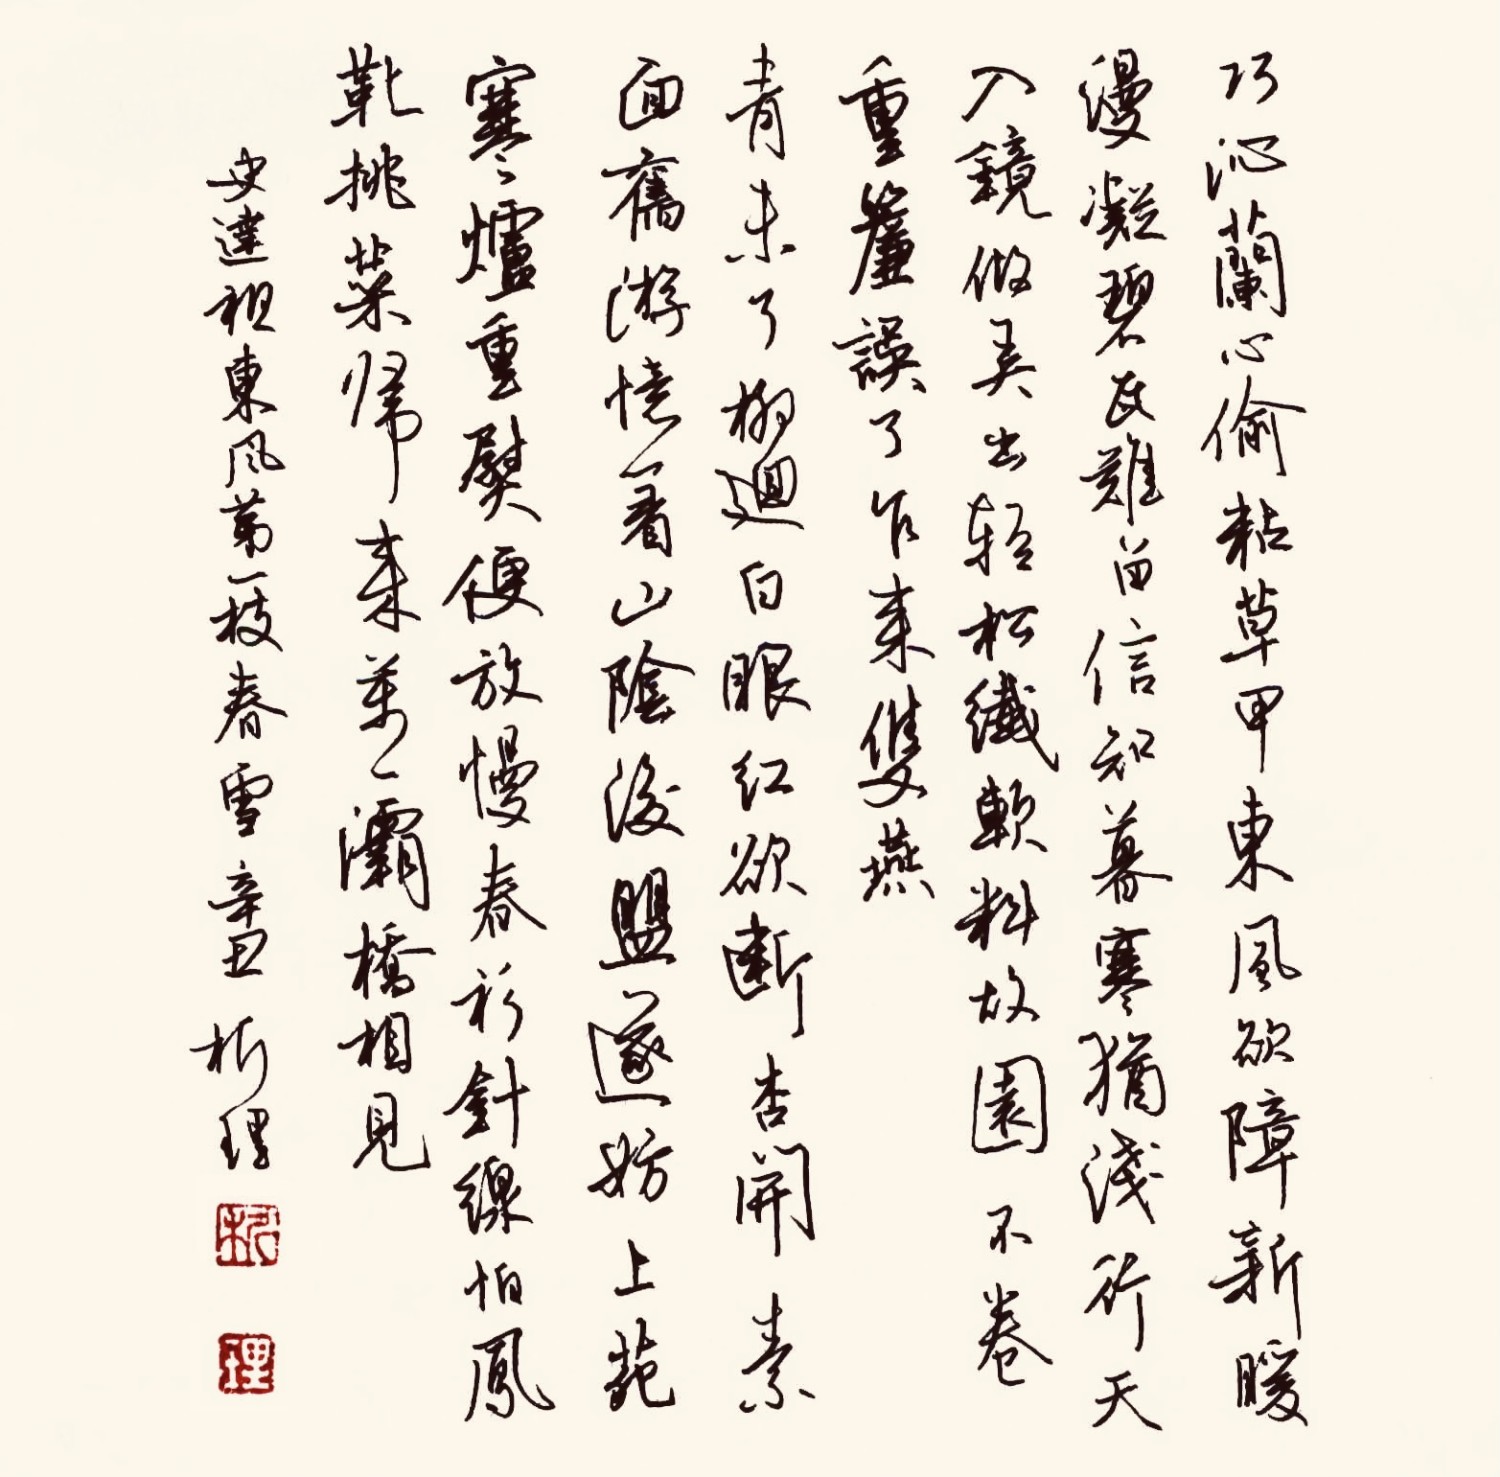 巧沁蘭心偷粘草甲東風欲障新暖
漫凝碧瓦難留信知暮寒猶淺行天
入鏡做弄出輕松纖軟料故園不卷
重簾誤了乍来雙燕
青未了柳迴白眼紅欲断杏開素
面舊游憶着山陰後盟遂妨上苑
寒爐重熨便放慢春衫針線怕鳳
靴挑菜归来萬一灞橋相見
史達祖東风第一枝春雪辛丑析理
析
理